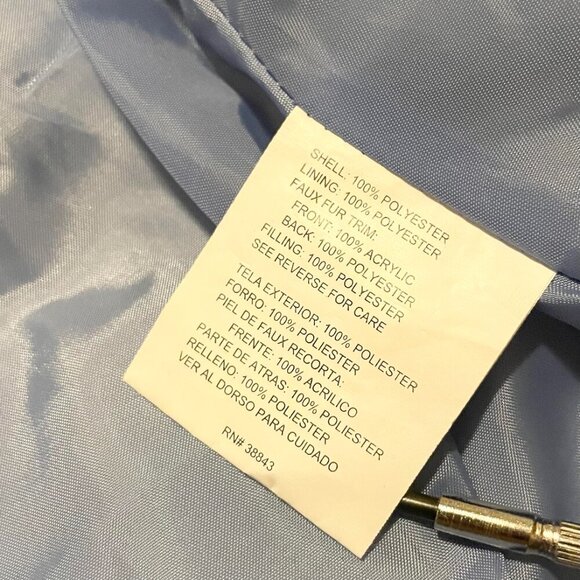 SHELL: 100% POLYESTER
LINING: 100% POLYESTER
FAUX FUR TRIM:
FRONT: 100% ACRYLIC
BACK: 100% POLYESTER
FILLING: 100% POLYESTER
SEE REVERSE FOR CARE
TELA EXTERIOR: 100% POLIESTER
FORRO: 100% POLIESTER
PIEL DE FAUX RECORTA:
FRENTE: 100% ACRILICO
PARTE DE ATRAS: 100% POLIESTER
RELLENO: 100% POLIESTER
VER AL DORSO PARA CUIDADO
RN# 38843